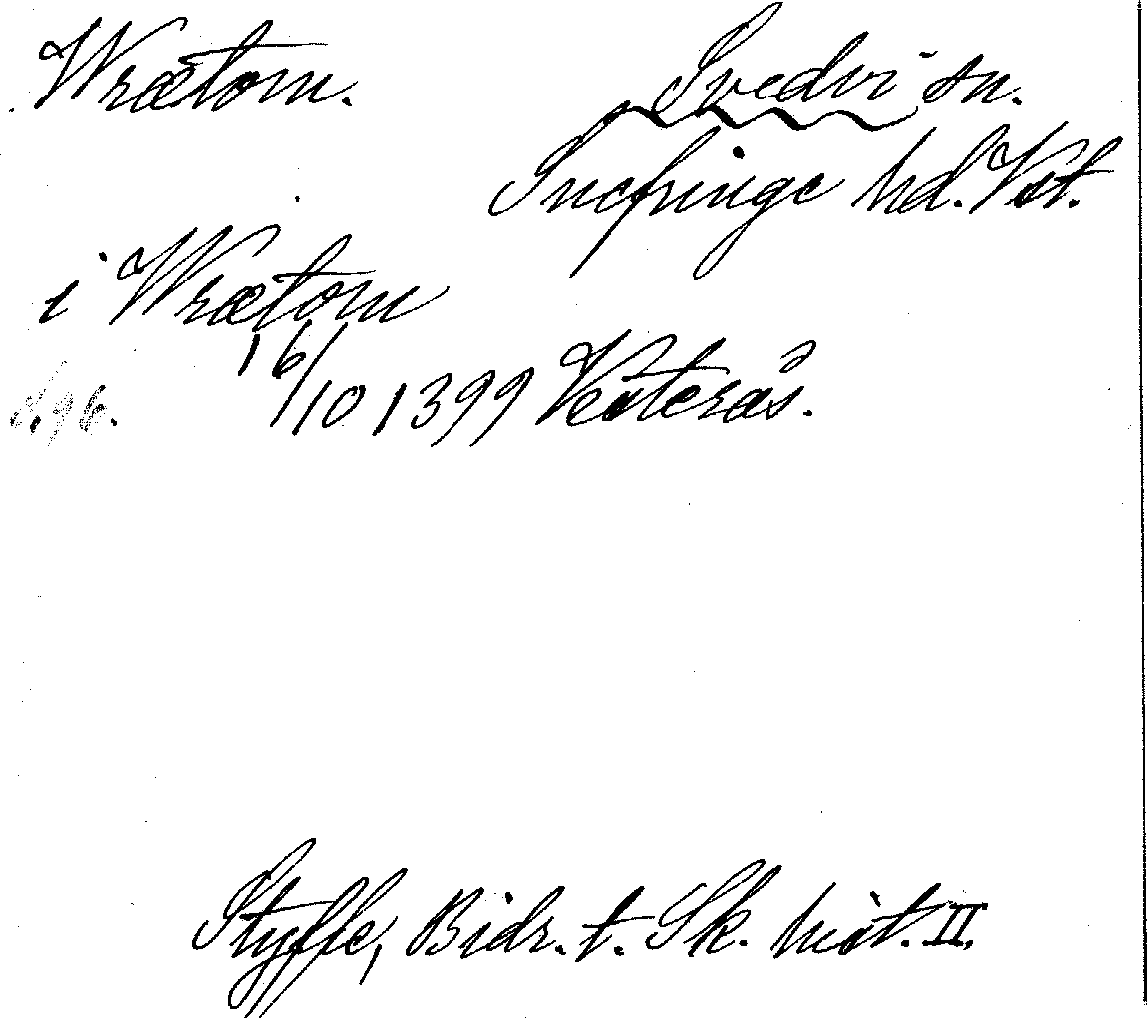 Wrætom.
Svedvi sn.
Snefringe hd. Vst.
i Wrætom
16/10 1399 Västerås.
Styffe, Bidr. t. Sk. hist. II.